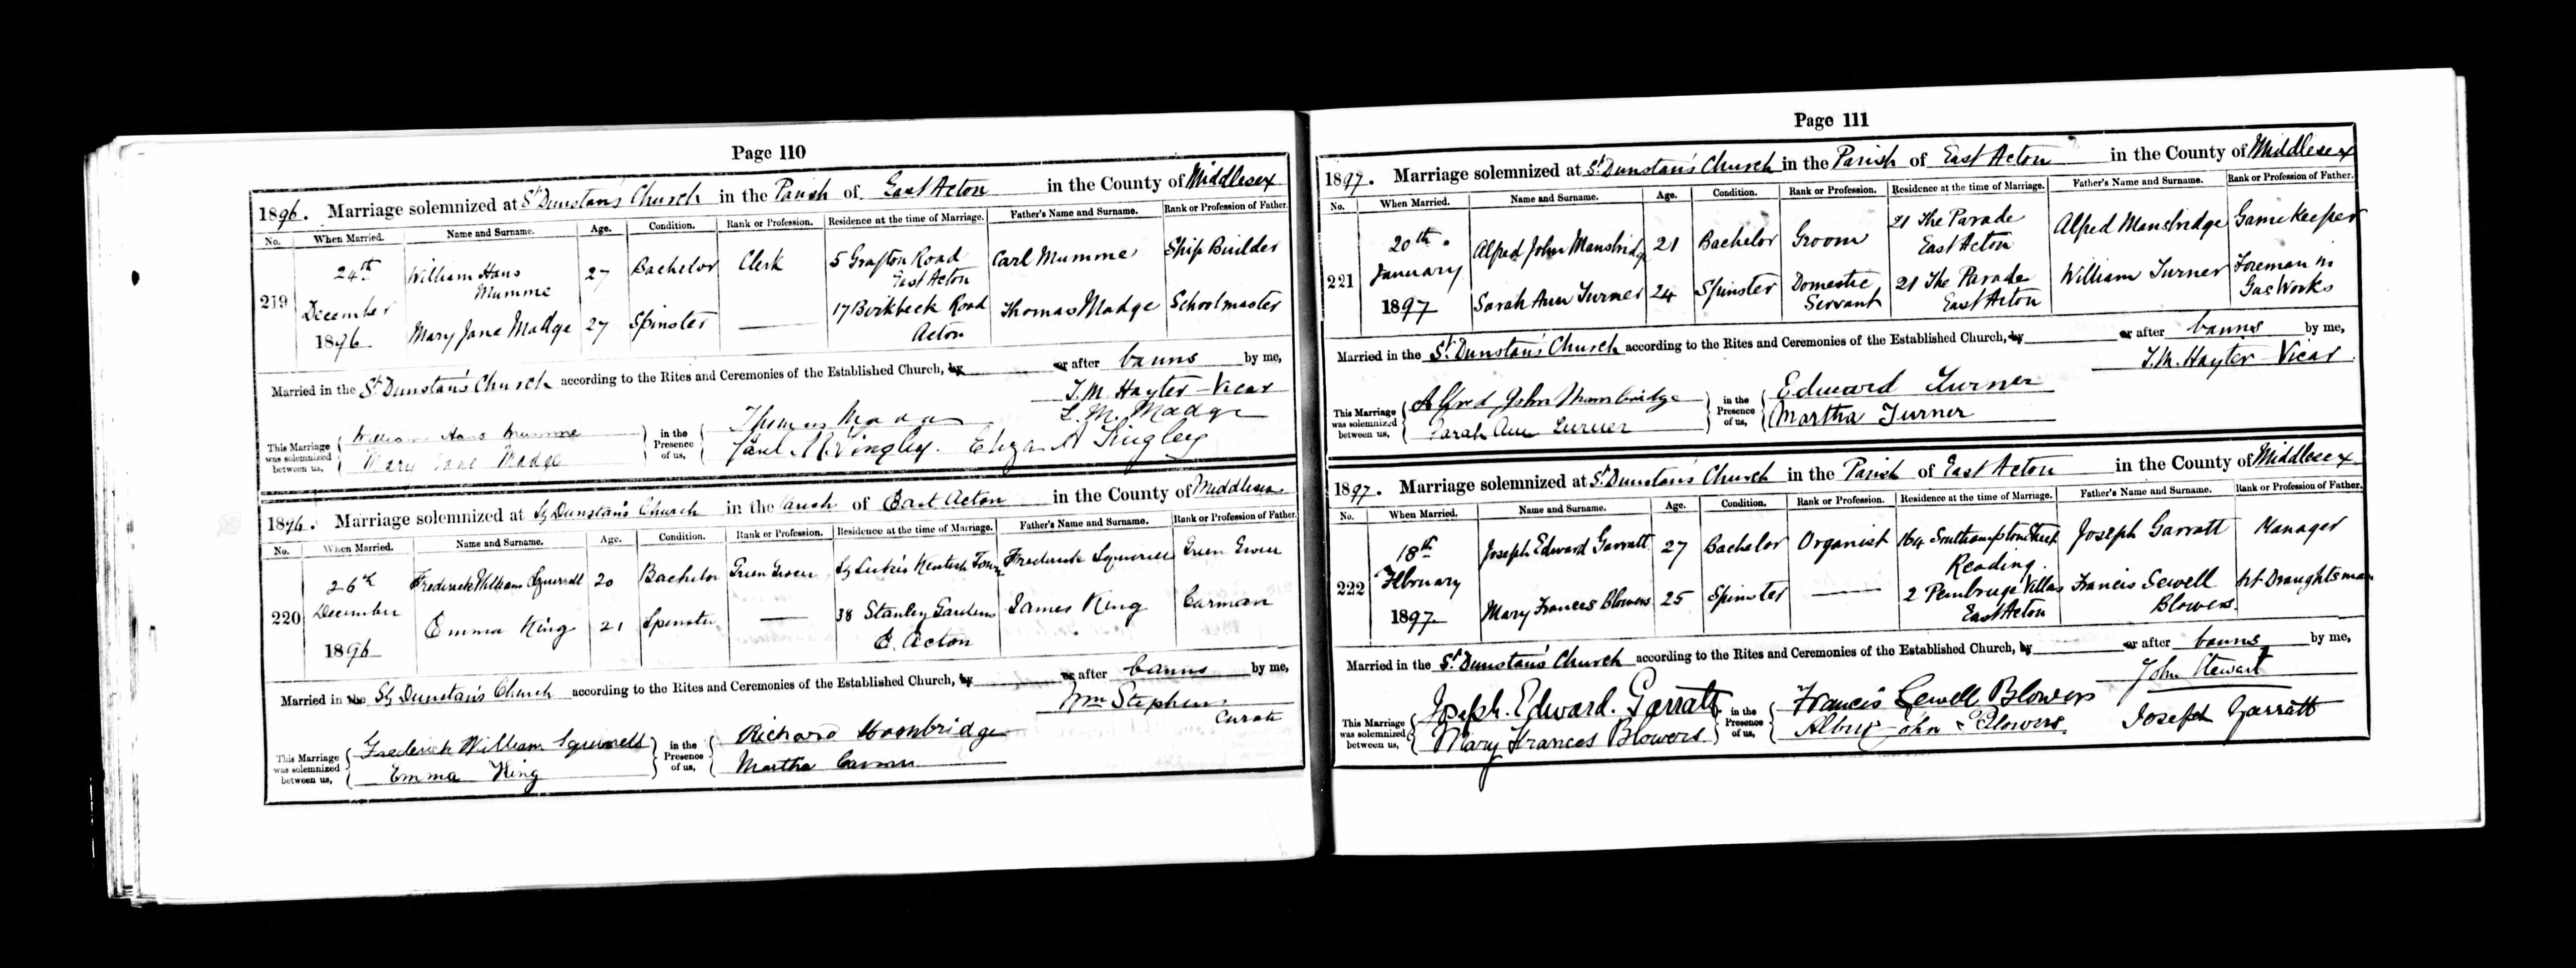 Page 110
1896. Marriage solemnized at St Dunstan's Church in the Parish of East Acton in the County of Middlesex
No. When Married. Name and Surname. Age. Condition. Rank or Profession. Residence at the time of Marriage. Father's Name and Surname. Rank or Profession of Father.
24th William Hans Mumme 27 Bachelor Clerk 5 Grafton Road East Acton Carl Mumme Ship Builder
219 December
1896 Mary Jane Madge 27 Spinster 17 Birkbeck Road Acton Thomas Madge Schoolmaster
Married in the St Dunstan's Church according to the Rites and Ceremonies of the Established Church, by or after banns by me,
T.M. Hayter Vicar
This Marriage was solemnized between us, William Hans Mumme in the Presence of us, Thomas Madge L. M. Madge
Mary Jane Madge Paul Eliza A Tingley
1896. Marriage solemnized at St Dunstan's Church in the Parish of East Acton in the County of Middlesex
No. When Married. Name and Surname. Age. Condition. Rank or Profession. Residence at the time of Marriage. Father's Name and Surname. Rank or Profession of Father.
26th Frederick William Squirrell 20 Bachelor Green Grocer St Luke's Kentish Town Frederick Squirrell Green Grocer
220 December
1896 Emma King 21 Spinster 38 Stanley Gardens E. Acton James King Carman
Married in the St Dunstan's Church according to the Rites and Ceremonies of the Established Church, by or after banns by me,
Wm Stephens Curate
This Marriage was solemnized between us, Frederick William Squirrell in the Presence of us, Richard
Emma King Martha
Page 111
1897. Marriage solemnized at St Dunstan's Church in the Parish of East Acton in the County of Middlesex
No. When Married. Name and Surname. Age. Condition. Rank or Profession. Residence at the time of Marriage. Father's Name and Surname. Rank or Profession of Father.
20th Alfred John Mansbridge 21 Bachelor Groom 21 The Parade East Acton Alfred Mansbridge Game Keeper
221 January
1897 Sarah Ann Turner 24 Spinster Domestic Servant 21 The Parade East Acton William Turner Foreman in Gas Works
Married in the St Dunstan's Church according to the Rites and Ceremonies of the Established Church, by or after banns by me,
T.M. Hayter Vicar
This Marriage was solemnized between us, Alfred John Mansbridge in the Presence of us, Edward Turner
Sarah Ann Turner Martha Turner
1897. Marriage solemnized at St Dunstan's Church in the Parish of East Acton in the County of Middlesex
No. When Married. Name and Surname. Age. Condition. Rank or Profession. Residence at the time of Marriage. Father's Name and Surname. Rank or Profession of Father.
18th Joseph Edward Garratt 27 Bachelor Organist 164 Southampton Street Reading. Joseph Garratt Manager
222 February
1897 Mary Frances Blowers 25 Spinster 2 Pembruge Villas East Acton Francis Sewell Blowers. Art Draughtsman
Married in the St Dunstan's Church according to the Rites and Ceremonies of the Established Church, by or after banns by me,
John Stewart
This Marriage was solemnized between us, Joseph. Edward. Garratt in the Presence of us, Francis Sewell Blowers
Mary Frances Blowers. John Blowers. Joseph Garratt